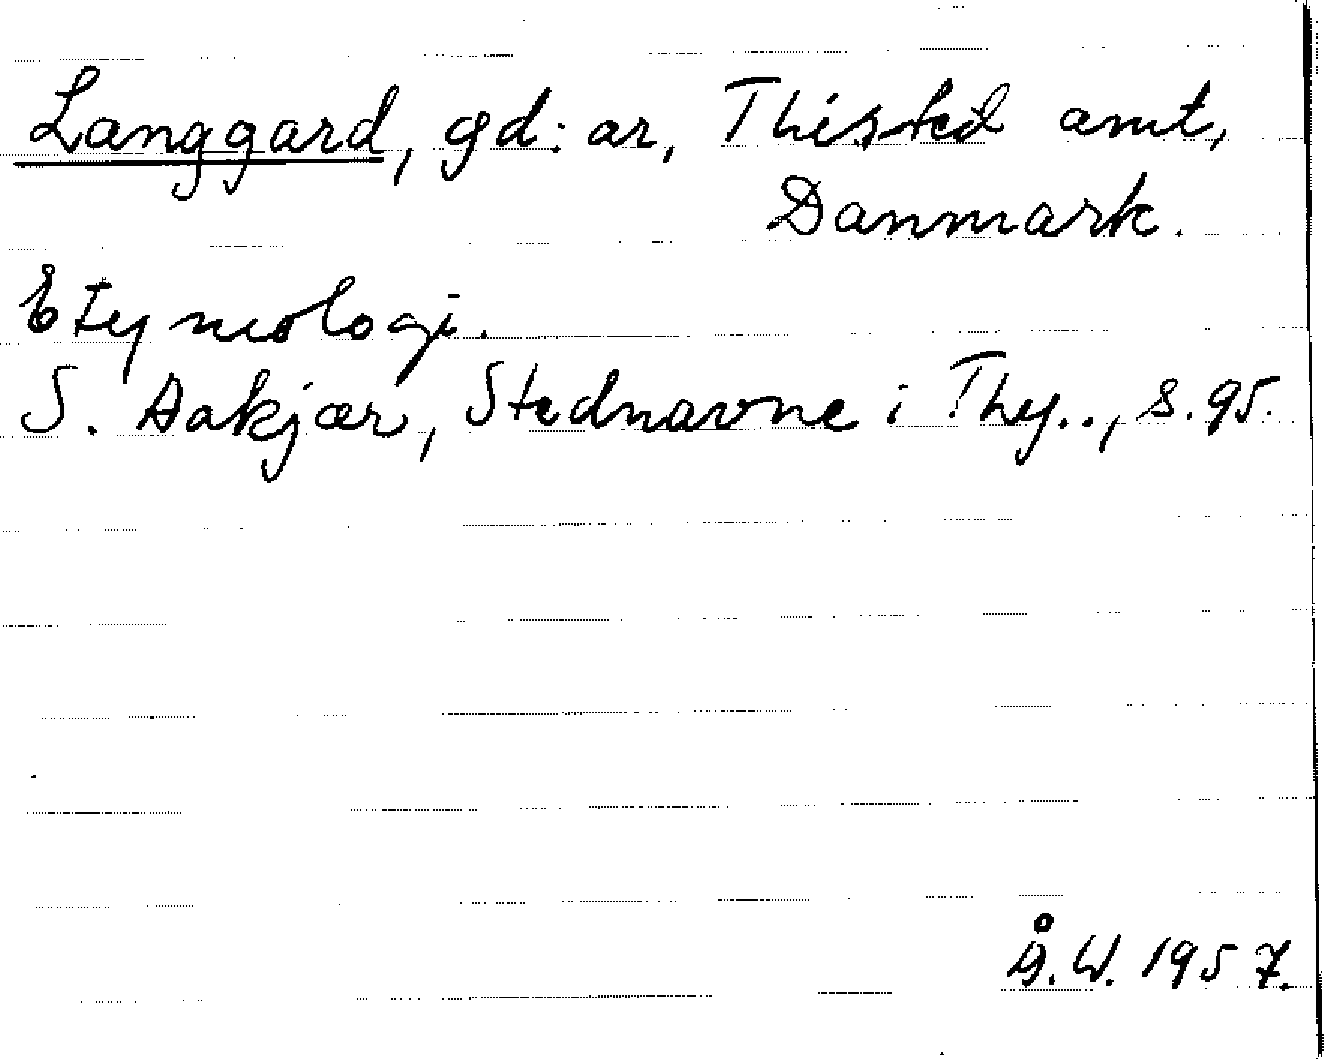 Langgard, gd:ar, Thisted amt,
Danmark.
Etymologi.
S. Aakjær, Stednavne i Thy.., s. 95.
Å.W. 1957.